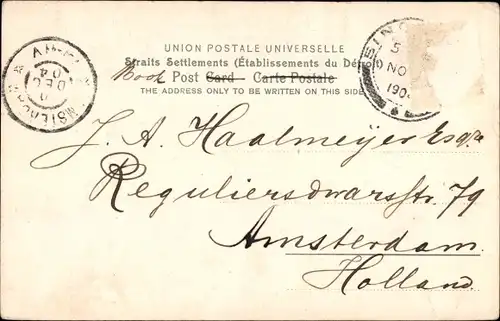 UNION POSTALE UNIVERSELLE
Straits Settlements (Établissements du Détroit)
Book Post Card — Carte Postale
THE ADDRESS ONLY TO BE WRITTEN ON THIS SIDE
AMSTERDAM
DEC
04
SING
5
NO
190
J. A. Haalmeyer Esqre
Reguliersdwarsstr. 79
Amsterdam.
Holland.